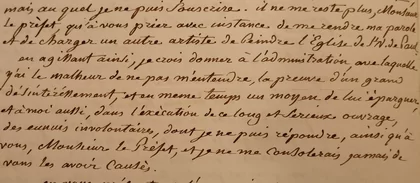 mais au quel je ne puis Souscrire. il ne me reste plus, Monsieur
le préfet, qu'à vous prier avec instance de me rendre ma parole
et de charger un autre artiste de Peindre l'Eglise de St. V. de Paul.
en agissant ainsi, je crois donner à l'administration avec laquelle
j'ai le malheur de ne pas m'entendre, la preuve d'un grand
désintéressement, et en même temps un moyen de lui épargner,
et à moi aussi, dans l'exécution de ce long et serieux ouvrage,
des ennuis involontaires, dont je ne puis répondre, ainsi qu'à
vous, Monsieur le Préfet, et je ne me consolerais jamais de
vous les avoir causés.